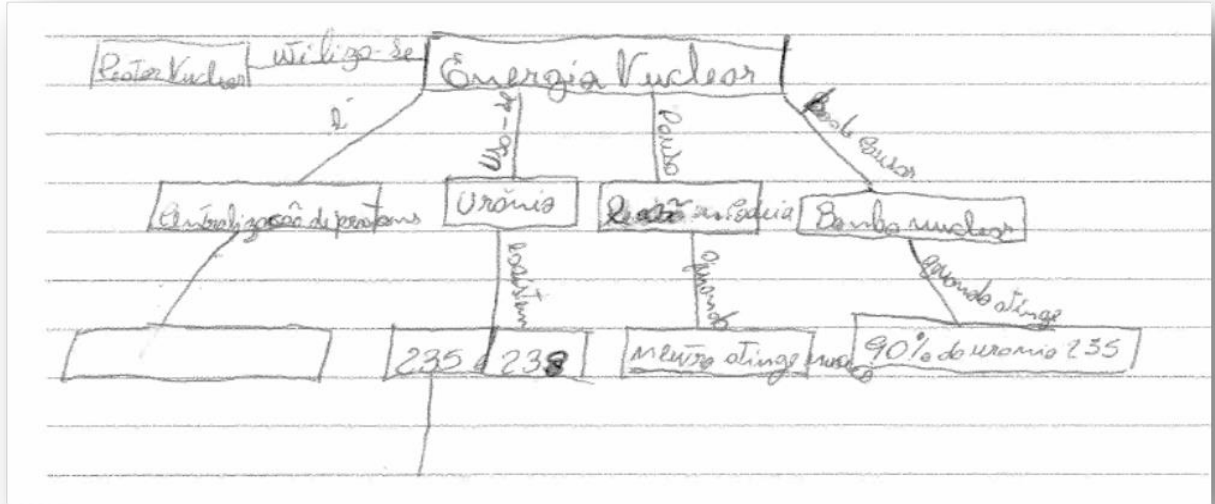 Reator Nuclear utiliza-se Energia Nuclear
é
Usa-se
Causa
Pode Causar
Centralização de protons
Urânio
Reação em Cadeia
Bomba nuclear
existem
quando
quando atinge
235 e 238
neutro atinge nucleo
90% do uranio 235